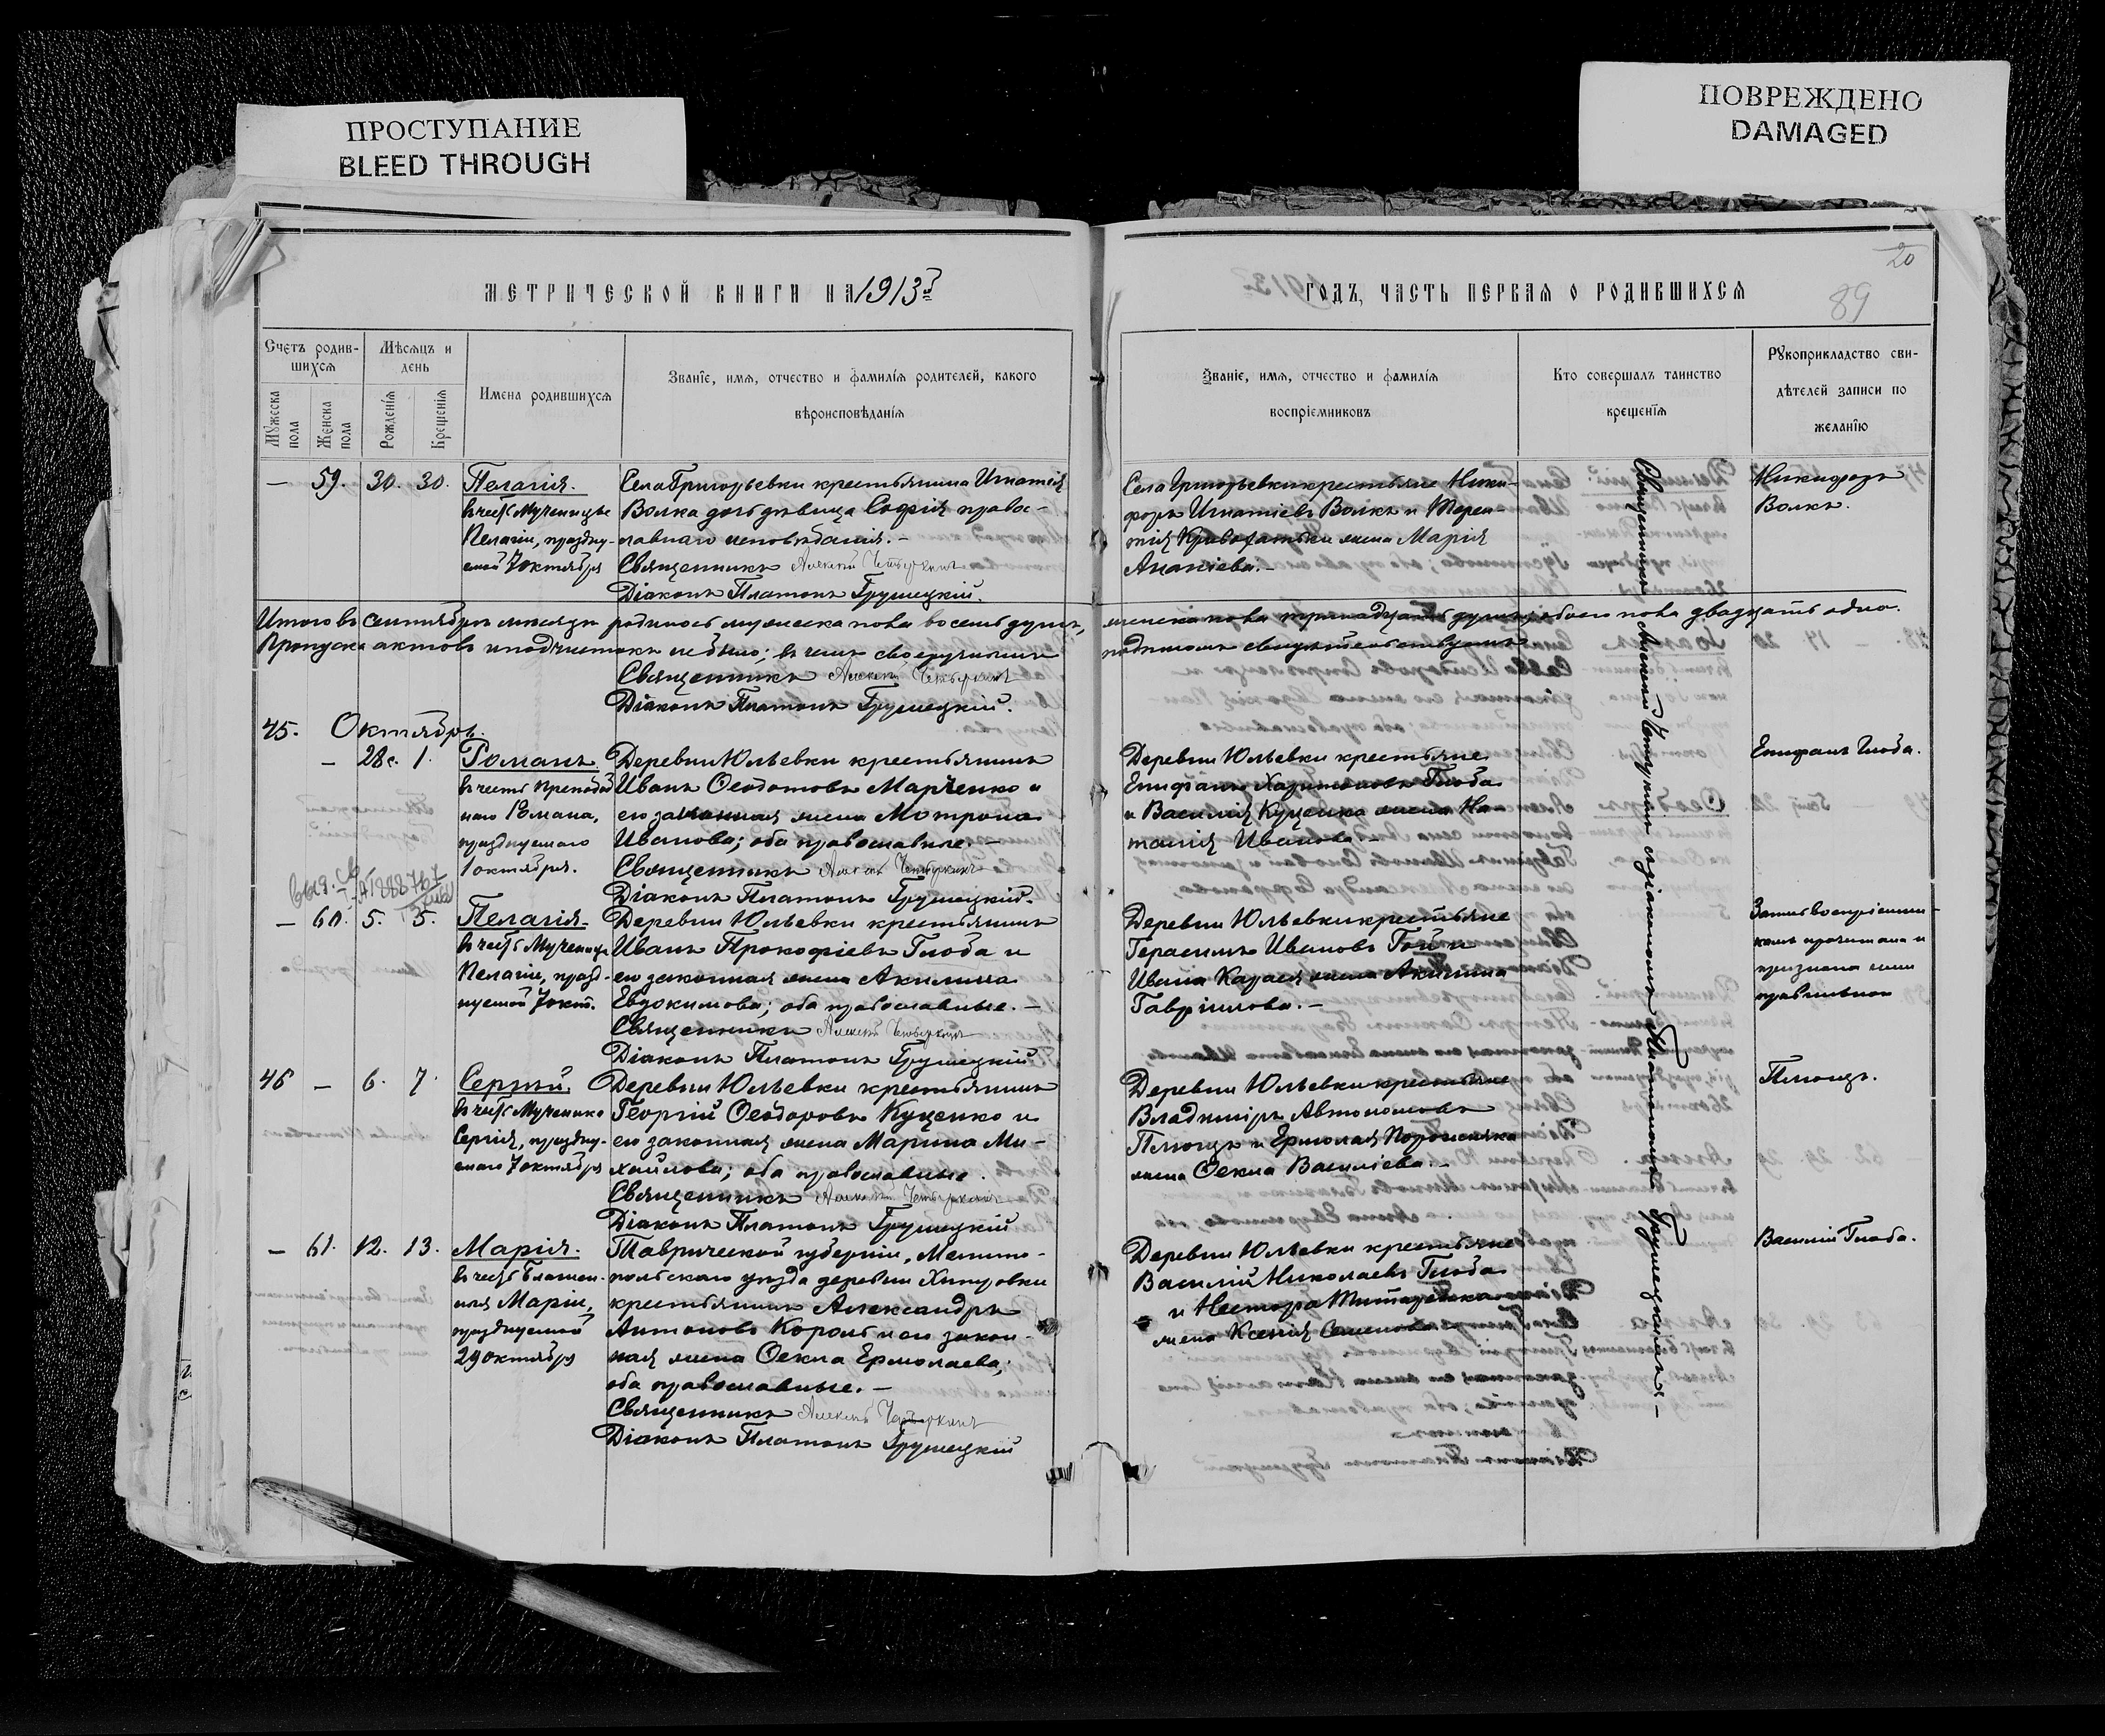 ПРОСТУПАНИЕ
BLEED THROUGH
ПОВРЕЖДЕНО
DAMAGED
20
89
МЕТРИЧЕСКОЙ КНИГИ НА 1913й
ГОДЪ, ЧАСТЬ ПЕРВАЯ О РОДИВШИХСЯ
Счетъ родив-
шихся
Мужеска
пола
Женска
пола
Мѣсяцъ и
день
Рожденія
Крещенія
Имена родившихся
Званіе, имя, отчество и фамилія родителей, какого
вѣроисповѣданія
Званіе, имя, отчество и фамилія
воспріемниковъ
Кто совершалъ таинство
крещенія
Рукоприкладство сви-
дѣтелей записи по
желанію
— 59. 30. 30.
Пелагія.
въ честь Мученицы
Пелагіи, праздну-
емой 7 октября
Села Григорьевки крестьянина Игнатія
Волка дочь дѣвица Софія право-
славнаго исповѣданія.—
Священникъ Алексѣй Четыркинъ
Діаконъ Платонъ Грушецкій.
Села Григорьевки крестьяне Ники-
форъ Игнатіевъ Волкъ и Терен-
тія жена Марія
Ананіева.—
Никифоръ
Волкъ.
Итого въ сентябрѣ мѣсяцѣ родилось мужеска пола восемь душъ,
женска пола тринадцать душъ, обоего пола двадцать одно.
Пропуска актовъ и подчистокъ не было; въ чемъ своеручнымъ
подписомъ свидѣтельствуемъ
Священникъ Алексѣй Четыркинъ
Діаконъ Платонъ Грушецкій.
Октябрь.
45. — 28с. 1.
Романъ.
въ честь Преподоб
наго Романа,
празднуемаго
1 октября.
Деревни Юльевки крестьянинъ
Иванъ Ѳеодотовъ Марченко и
его законная жена Мотрона
Иванова; оба православные.—
Священникъ Алексѣй Четыркинъ
Діаконъ Платонъ Грушецкій.
Деревни Юльевки крестьяне
Епифанъ Харитоновъ Глоба
и Василія Куценка жена На-
талія Иванова.—
Епифанъ Глоба.
— 60. 5. 5.
Пелагія.
въ честь Мученицы
Пелагіи, празд-
нуемой 7 окт.
Деревни Юльевки крестьянинъ
Иванъ Прокофіевъ Глоба и
его законная жена Акилина
Евдокимова; оба православные.—
Священникъ Алексѣй Четыркинъ
Діаконъ Платонъ Грушецкій.
Деревни Юльевки крестьяне
Герасимъ Ивановъ Гой и
Ивана Карася жена Акилина
Гавріилова.—
Запись воспріемни-
камъ прочитана и
признана ими
правильной
46 — 6. 7.
Сергій.
въ честь Мученика
Сергія, праздну-
емаго 7 октября
Деревни Юльевки крестьянинъ
Георгій Ѳеодоровъ Куценко и
его законная жена Марина Ми-
хайлова; оба православные.
Священникъ Алексѣй Четыркинъ
Діаконъ Платонъ Грушецкій
Деревни Юльевки крестьяне
Владиміръ Автономовъ
и Ермолая
жена Ѳекла Василіева.—
— 61. 12. 13.
Марія.
въ честь Блажен-
ныя Маріи,
празднуемой
29 октября
Таврической губерніи, Мелито-
польскаго уѣзда деревни
крестьянинъ Александръ
Антоновъ Король и его закон-
ная жена Ѳекла Ермолаева;
оба православные.—
Священникъ Алексѣй Четыркинъ
Діаконъ Платонъ Грушецкій
Деревни Юльевки крестьяне
Василій Николаевъ Глоба
и Нестора
жена Ксенія Семенова.
Василій Глоба.
Священникъ Алексѣй Четыркинъ съ діакономъ Платономъ Грушецкимъ.—